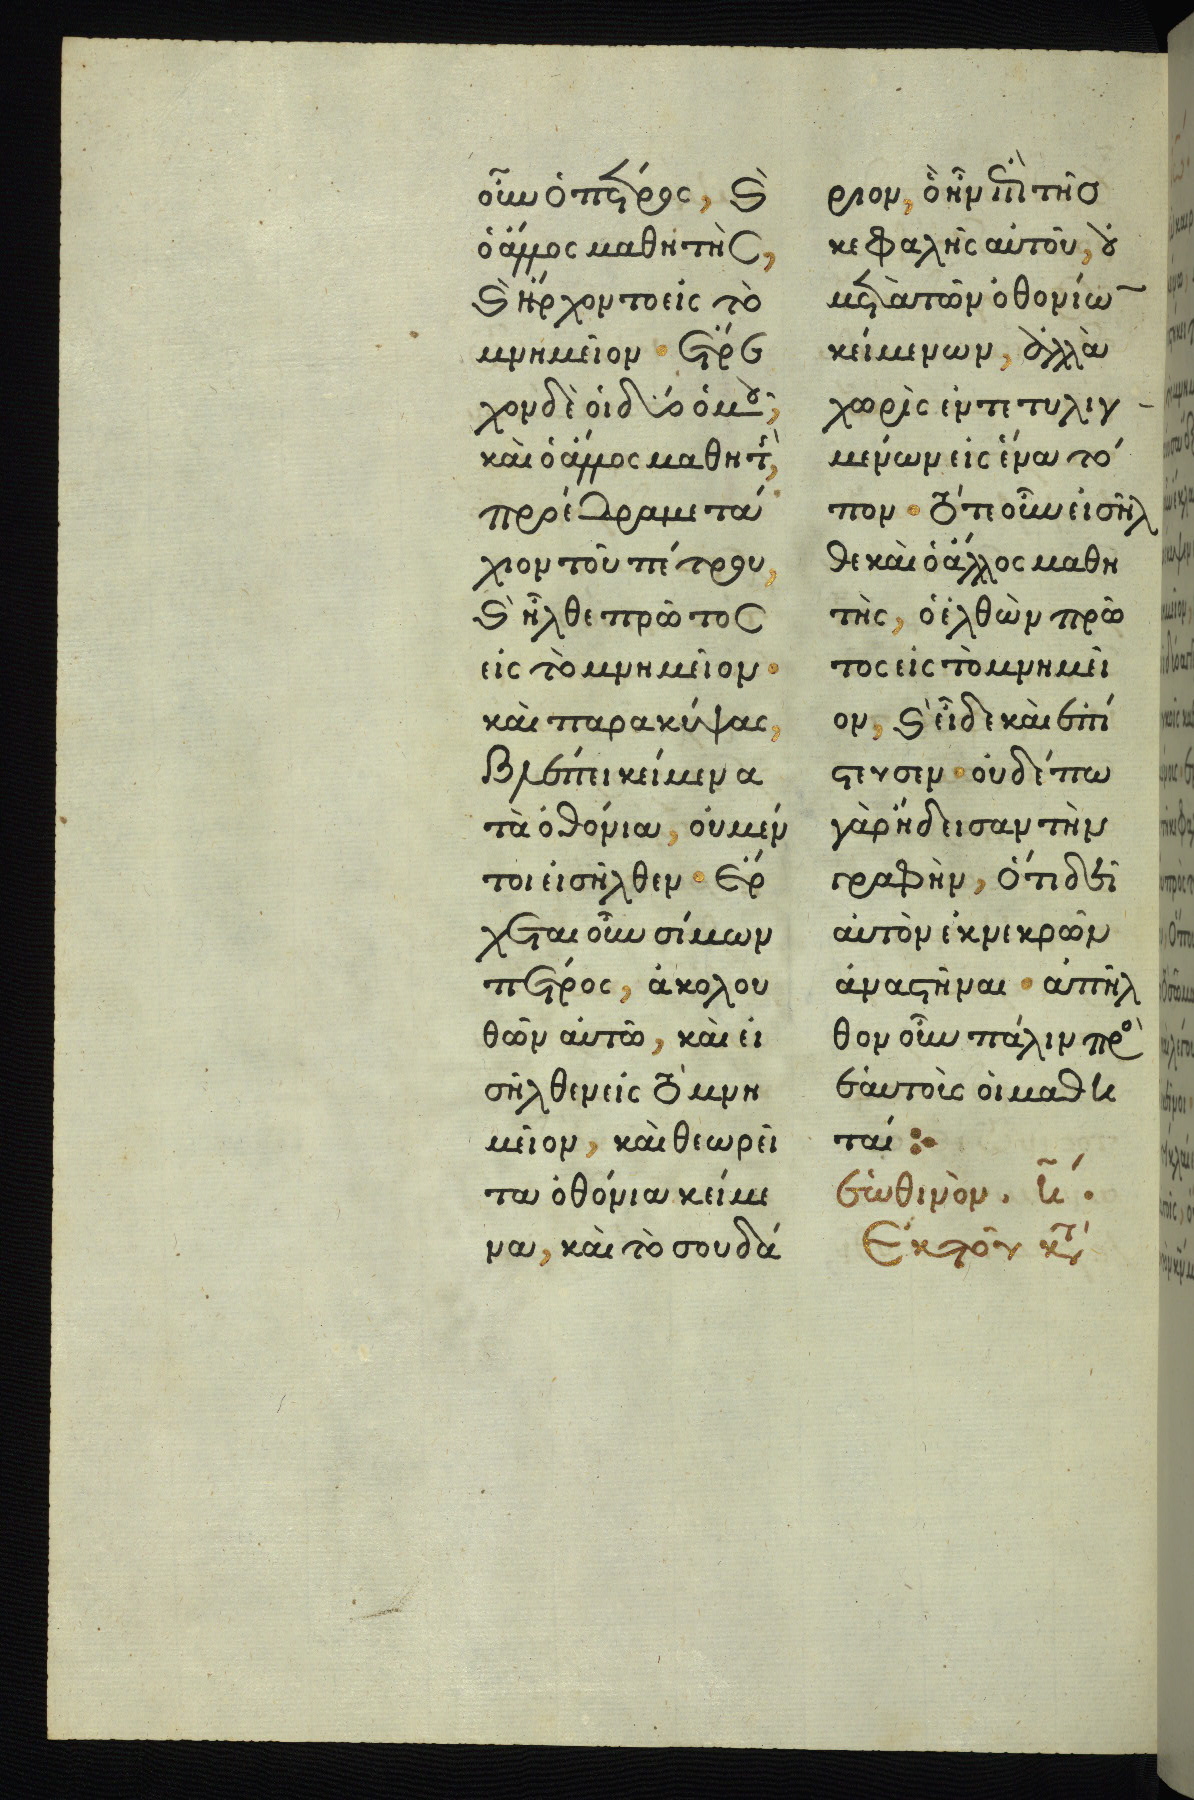 οὖν ὁ πέτρος, καὶ
ὁ ἄλλος μαθητὴς,
καὶ ἤρχοντο εἰς τὸ
μνημεῖον· ἔτρε
χον δὲ οἱ δύο ὁμοῦ,
καὶ ὁ ἄλλος μαθητὴς,
προέδραμε τά
χιον τοῦ πέτρου,
καὶ ἦλθε πρῶτος
εἰς τὸ μνημεῖον·
καὶ παρακύψας,
βλέπει κείμενα
τὰ ὀθόνια, οὐ μέν
τοι εἰσῆλθεν· ἔρ
χεται οὖν σίμων
πέτρος, ἀκολου
θῶν αὐτῶ, καὶ εἰ
σῆλθεν εἰς τὸ μνη
μεῖον, καὶ θεωρεῖ
τα ὀθόνια κείμε
να, καὶ τὸ σουδά
ριον, ὃ ἦν ἐπὶ τῆς
κεφαλῆς αὐτοῦ, οὐ
μετὰ τῶν ὀθονίων
κείμενων, ἀλλὰ
χωρὶς ἐντετυλιγ-
μένων εἰς ἕνα τό
πον· τότε οὖν εἰσῆλ
θε καὶ ὁ ἄλλος μαθη
τὴς, ὁ ἐλθὼν πρῶ
τος εἰς τὸ μνημεῖ
ον, καὶ εἶδε καὶ ἐπί
στευσεν· οὐδέπω
γὰρ ἤδεισαν τὴν
γραφὴν, ὅτι δεῖ
αὐτὸν ἐκ νεκρῶν
ἀναστῆναι· ἀπῆλ
θον οὖν πάλιν πρὸς
ἑαυτοὺς οἱ μαθη
ταί ⁘
ἑωθινὸν. η̃.
Ἐκ τοῦ κατ